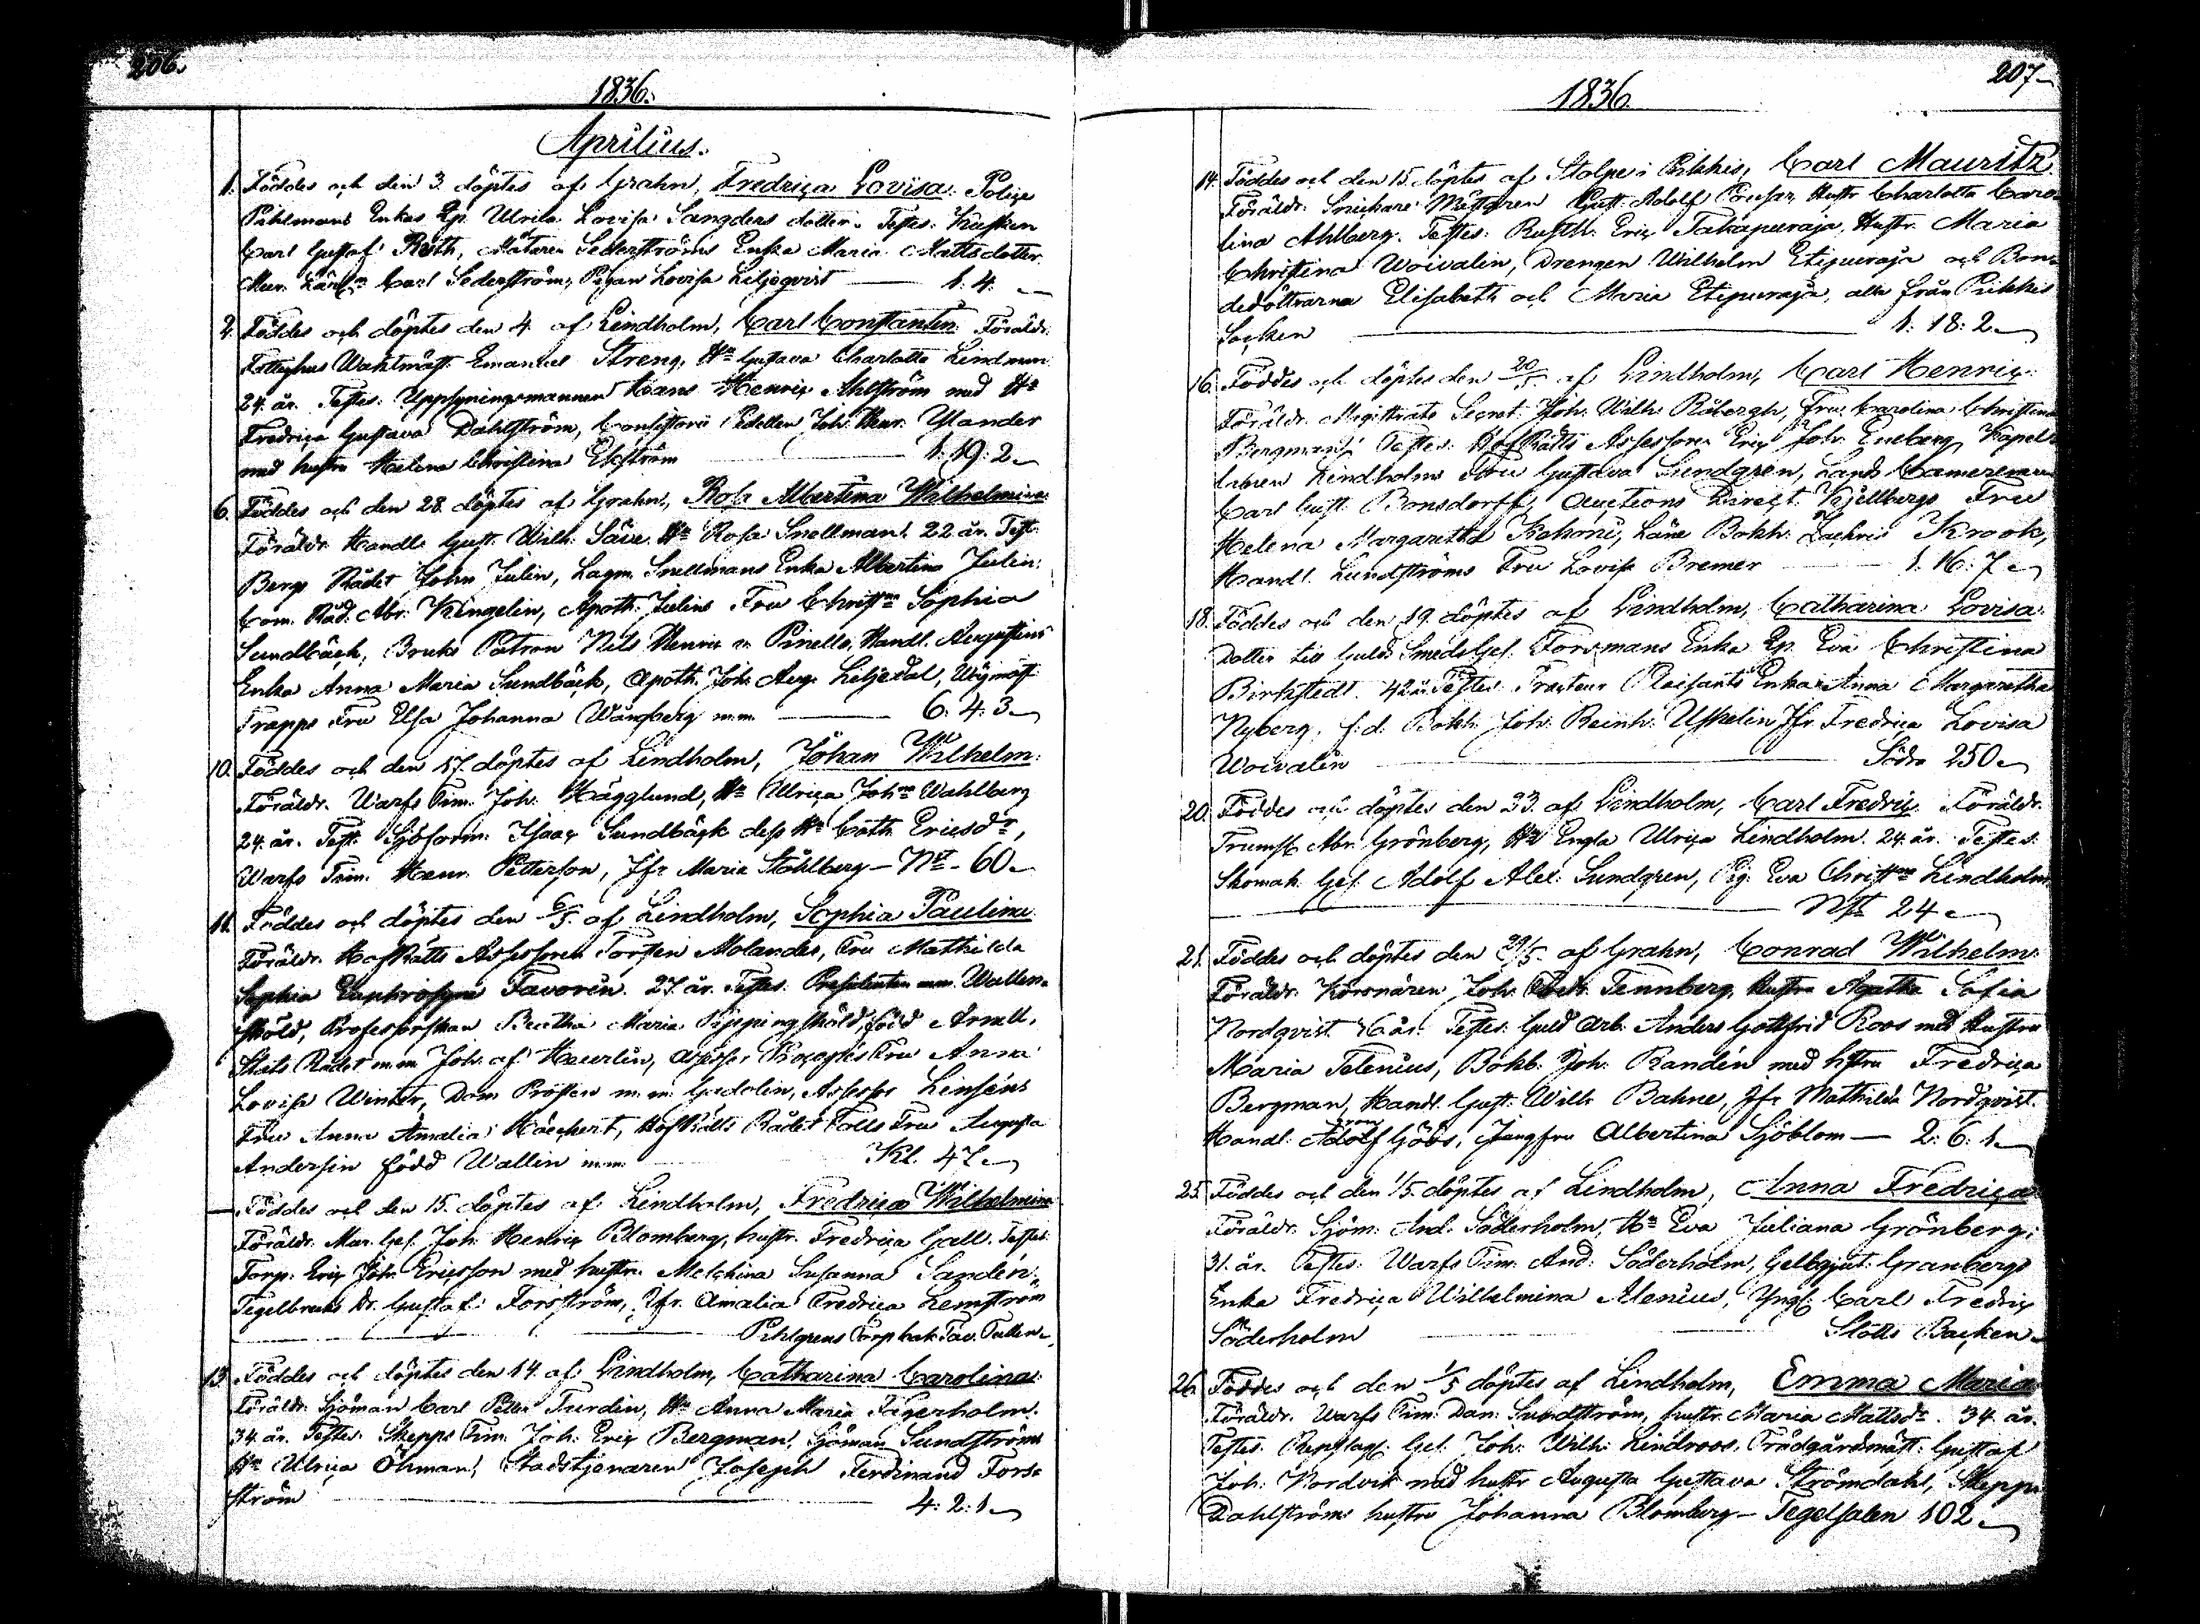 206.
1836.
Aprilius.
1. Föddes och den 3. döptes af Grahn, Fredrica Lovisa. Police
Pihlmans Enkas Ep. Ulrika Lovisa Sangders dotter. Testes: Kusken
Carl Gustaf Roth, Mätaren Sederströms Enka Maria Mattsdotter
Mur. Carl Sederström, Pigan Lovisa Liljeqvist — 1. 4.
2. Föddes och döptes den 4. af Lindholm, Carl Constantin. Föräldr.
Waktmäst. Emanuel Streng, Hu Gustava Charlotta Lindman
24. år. Testes: Uppsyningsmannen Hans Henric Ahlström med Hu
Fredrica Gustava Dahlström, Consistorii Pedellen Joh. Henr. Ylander
med hustru Helena Christina Ekström 1. 19: 2
6. Föddes och den 28. döptes af Grahn, Rosa Albertina Wilhelmina
Föräldr. Handl. Gust. Wilh. Säve. Hu Rosa Snellman. 22 år. Test.
Bergs Rådet John Julin, Lagm. Snellmans Enka Albertina Julin.
Com. Råd. Abr. Kingelin, Apoth. Julins Fru Christna Sophia
Sundbäck, Bruks Patron Nils Henric Pinello, Handl. Augustins
Enka Anna Maria Sundbäck, Apoth. Joh. Aug. Liljedal, Wågmäst.
Trapps Fru Elsa Johanna Wångberg m.m. — 6. 4. 3
10. Föddes och den 17. döptes af Lindholm, Johan Wilhelm.
Föräldr. Warfs Tim. Joh. Hägglund, Hu Ulrica Johna Wahlberg
24. år. Test. Sjöform. Isaac Sundbäck dess Hu Cath. Ericsdr,
Warfs Tim. Henr. Petterson, Jfr Maria Ståhlberg — 60
11. Föddes och döptes den 6/5. af Lindholm, Sophia Paulina
Föräldr. HofRätts Assessoren Torsten Molander, Fru Mathilda
Sophia Euphrosyne Favorin. 27. år. Testes. Presidenten m.m. Wallen-
sköld, Professorskan Beatha Maria Pippingsköld, född Arnell.
Stats Rådet m.m. Joh. af Haartin, Assess. Fru Anna
Lovisa Winter, Dom Prosten m.m. Gadolin, Assessor Lenséns
Fru Anna Amalia, HofRätts Rådet Tolls Fru Augusta
Andersin född Wallin m.m. Kl. 47
— Föddes och den 15. döptes af Lindholm, Fredrica Wilhelmina
Föräldr. Mur. Ges. Joh. Henric Blomberg, hustr. Fredrica Gall. Testes:
Torp. Eric Joh. Ericsson med hustru Melchina Susanna Sandén,
Tegelbruks Dr. Gustaf Forsström, Jfr. Amalia Fredrica Lemström
Pihlgrens Torp
13. Föddes och döptes den 14. af Lindholm, Catharina Carolina.
Föräldr. Sjöman Carl Petter Turdin, Hu Anna Maria Jägerholm.
34. år. Testes. Skepps Tim. Joh. Eric Bergman, Sjöman Sundströms
Hu Ulrica Öhman, Stadstjenaren Joseph Ferdinand Fors-
ström — 4. 2. 1
207
1836.
14. Föddes och den 15. döptes af Stolpe i Pikkis, Carl Mauritz
Föräldr. Snickare Mästaren Gust. Adolf, Hustr. Charlotta Caro-
lina Ahlberg. Testes: Rusth. Eric Takapuraja, Hustr. Maria
Christina Woivalin, Drengen Wilhelm Etipuraja och Bon-
dedöttrarna Elisabeth och Maria Etipuraja, alla från Pikkis
Socken — 1: 18: 2
16. Föddes och döptes den 20/5 af Lindholm, Carl Henric.
Föräldr. Magistrats Secret. Joh. Wilh. Råbergh, Fru Carolina Christina
Bergman. Testes: HofRätts Assessoren Eric Joh. Eneberg, Kapel-
lanen Lindholms Fru Gustava Lundgren, Lands Camereraren
Carl Gust. Bonsdorff, Auctions Direct. Kjellbergs Fru
Helena Margaretha Kekoni, Läne Bokh. Zachris Krook,
Handl. Lundströms Fru Lovisa Bremer — 1. 16. 7
18. Föddes och den 19. döptes af Lindholm, Catharina Lovisa.
Dotter till Guld SmedsGes. Forsmans Enka Ep. Eva Christina
Birkstedt. 42 år. Testes: Tracteur Plaisants Enka Anna Margaretha
Nyberg, f.d. Bokh. Joh. Reinh. Ushelin, Jfr. Fredrica Lovisa
Woivalin — Södra 250
20. Föddes och döptes den 23. af Lindholm, Carl Fredric. Föräldr.
Trumsl. Abr. Grönberg, Hu Engla Ulrica Lindholm. 24. år. Testes.
Skomak. Ges. Adolf Alex. Sundgren, Pig. Eva Christna Lindholm
— 24
21. Föddes och döptes den 29/5. af Grahn, Conrad Wilhelm.
Föräldr. Körsnären Joh. Fredr. Tennberg, Hustru Agatha Sofia
Nordqvist år. Testes: Guld Arb. Anders Gottfrid Roos med Hustru
Maria Telenius, Bokb. Joh. Randén med hstru Fredrica
Bergman, Handl. Gust. Wilh. Bahne, Jfr Mathilda Nordqvist.
Handl. Adolf Göös, Jungfru Albertina Sjöblom — 2: 6. 1
25. Föddes och den 1/5. döptes af Lindholm, Anna Fredrica
Föräldr. Sjöm. And. Söderholm, Hu Eva Juliana Grönberg.
31. år. Testes: Warfs Tim. And. Söderholm, Gelbgjut. Granbergs
Enka Fredrica Wilhelmina Alenius, Yngl. Carl Fredric
Söderholm — Slotts Backen
26. Föddes och den 1/5 döptes af Lindholm, Emma Maria
Föräldr. Warfs Tim. Dan. Sundström, hustr. Maria Mattsdr. 34. år.
Testes. Repslag. Ges. Joh. Wilh. Lindroos, Trädgårdsmäst. Gustaf
Joh. Nordvik med hustr Augusta Gustava Strömdahl, Skepps
Dahlströms hustru Johanna Blomberg — Tegelsalen 102